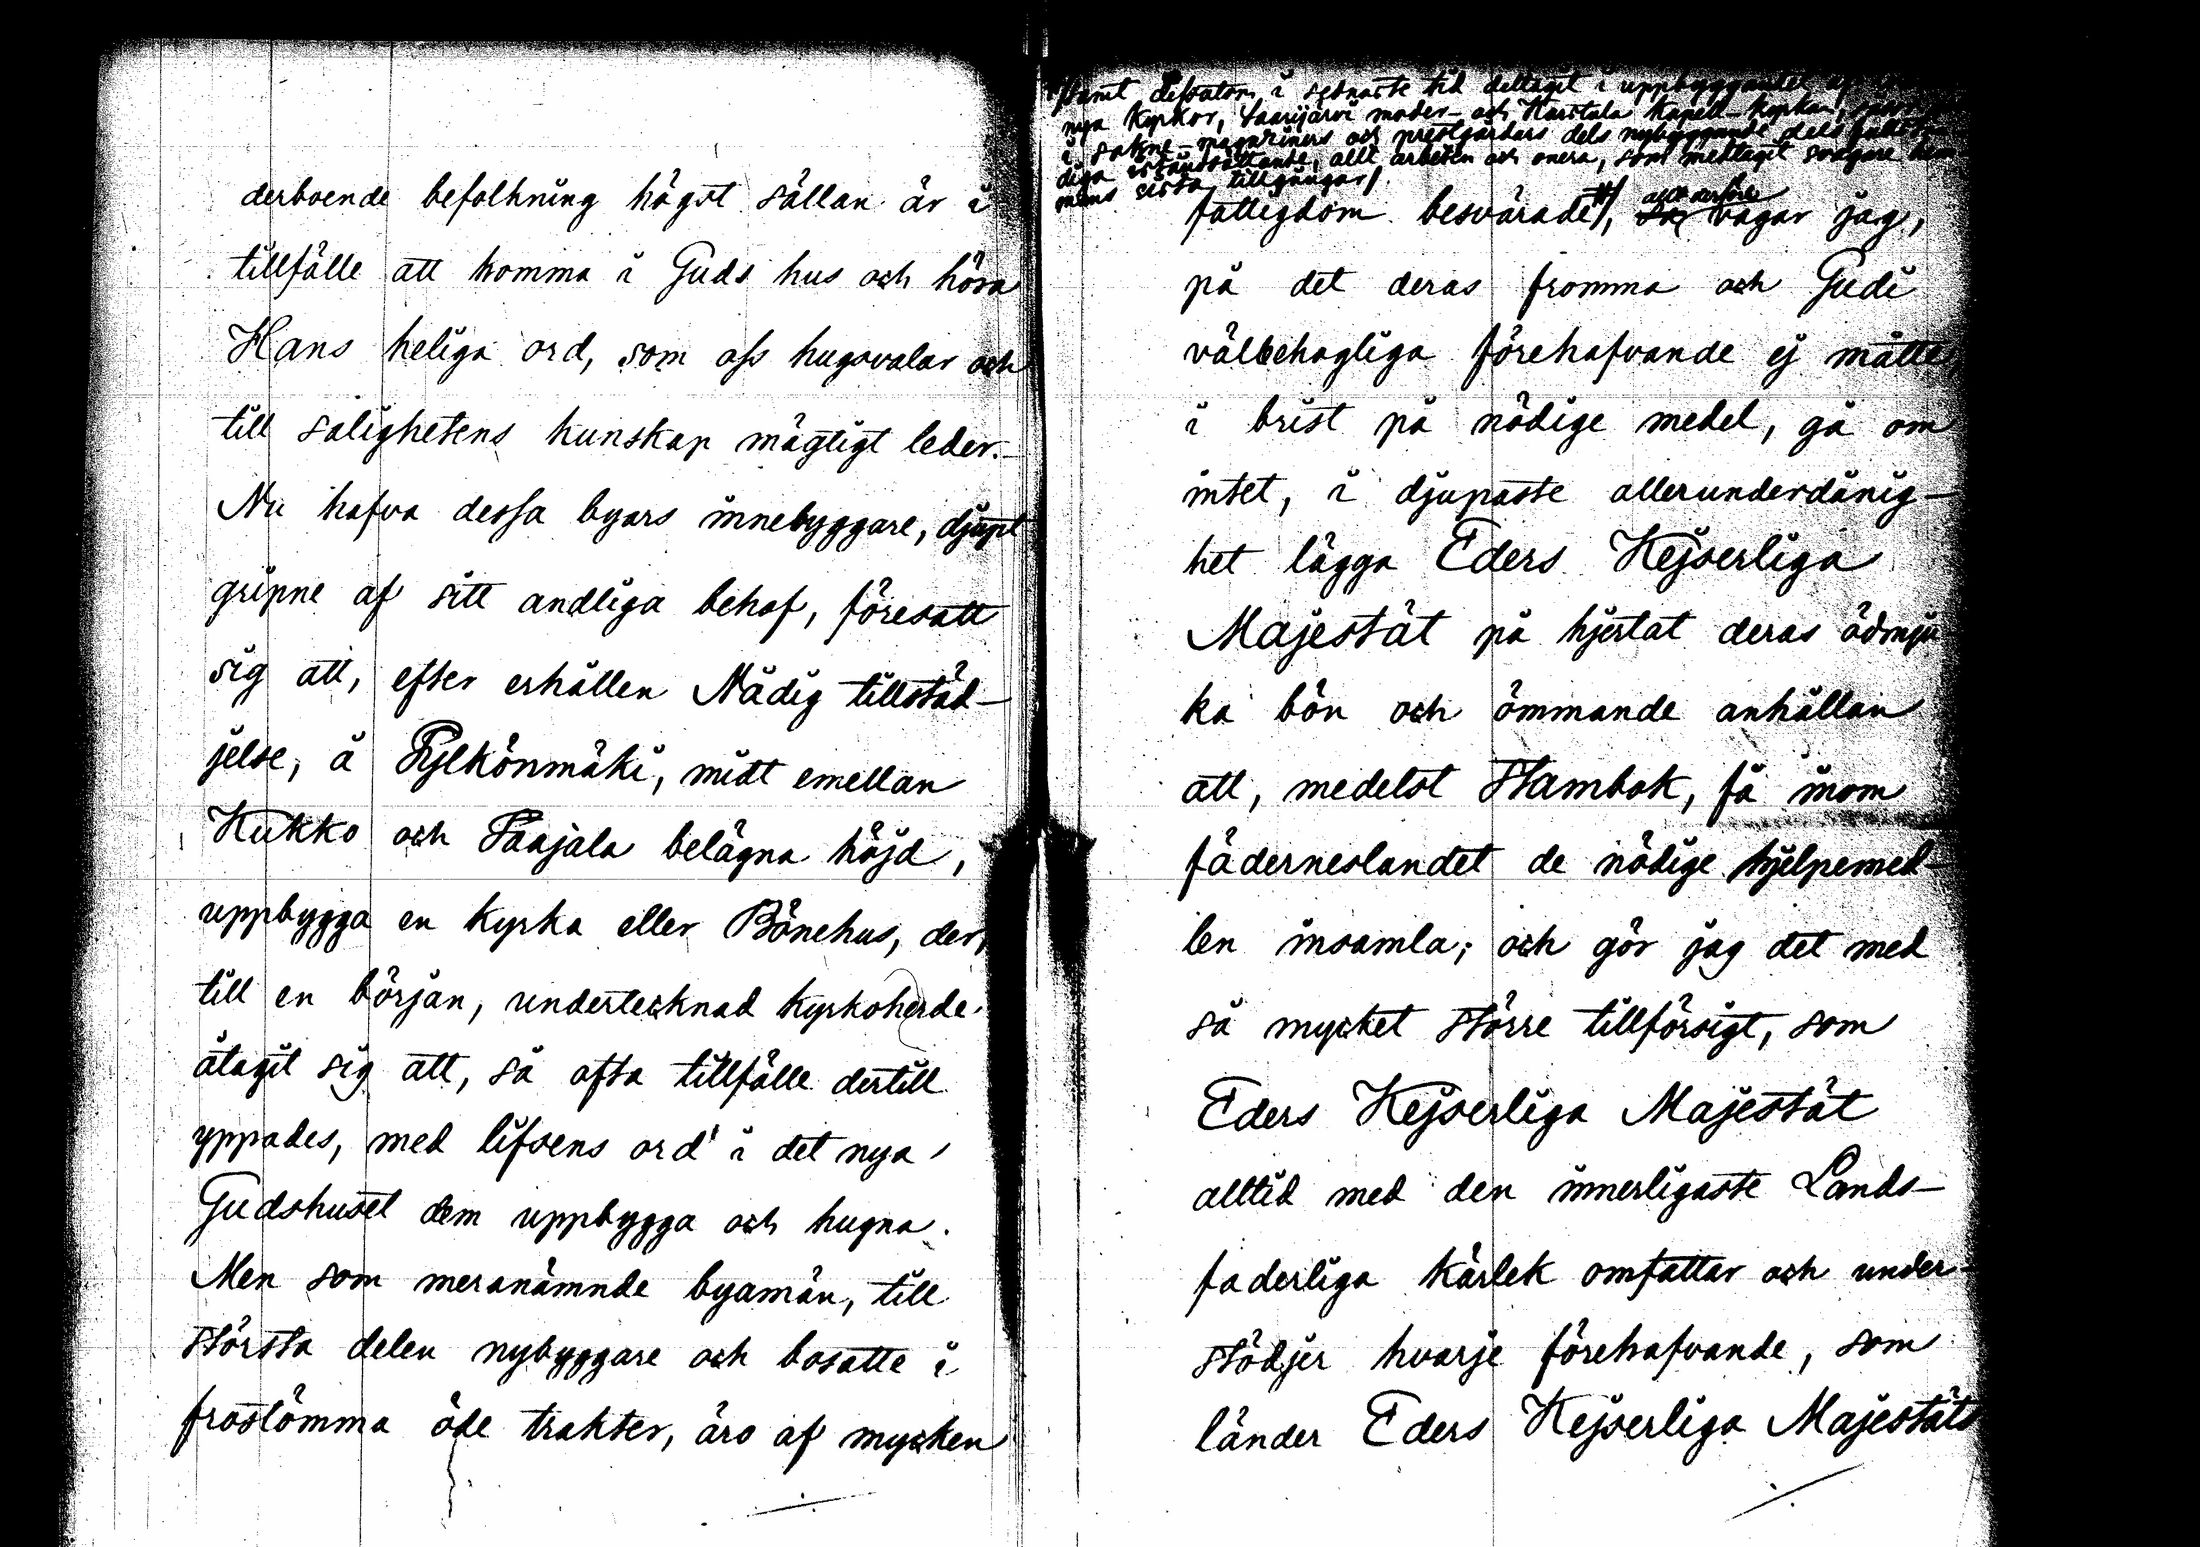 derboende befolkning högst sällan är i
tillfälle att komma i Guds hus och höra
Hans heliga ord, som oss hugsvalar och
till salighetens kunskap mägtigt leder.–
Nu hafva dessa byars innebyggare, djupt
gripne af sitt andliga behof, föresatt
sig att, efter erhållen Nådig tillstäd–
jelse, å Pylkönmäki, midt emellan
Kukko och Paajala belägna höjd,
uppbygga en kyrka eller Bönehus, der,
till en början, undertecknad kyrkoherde
åtagit sig att, så ofta tillfälle dertill
yppades, med lifsens ord i det nya
Gudshuset dem uppbygga och hugna.
Men som meranämnde byamän, till
största delen nybyggare och bosatte i
frostömma öde trakter, äro af mycken
samt dessutom i sednaste tid deltagit i uppbyggandet af
nya kyrkor, Saarijärvi moder- och Karstula Kapell-kyrkor,
i sockne-magaziners och prestgårdars dels nybyggande dels
diga iståndsättande, allt arbeten och onera, som medtagit svagare hem-
mans sista tillgångar/.
fattigdom besvärade #/, allt derföre vågar jag,
på det deras fromma och Gudi
välbehagliga förehafvande ej måtte,
i brist på nödige medel, gå om
intet, i djupaste allerunderdånig–
het lägga Eders Kejserliga
Majestät på hjertat deras ödmju
ka bön och ömmande anhållan
att, medelst Stambok, få inom
fäderneslandet de nödige hjelpemed–
len insamla; och gör jag det med
så mycket större tillförsigt, som
Eders Kejserliga Majestät
alltid med den innerligaste Lands–
faderliga kärlek omfattar och under–
stödjer hvarje förehafvande, som
länder Eders Kejserliga Majestäts